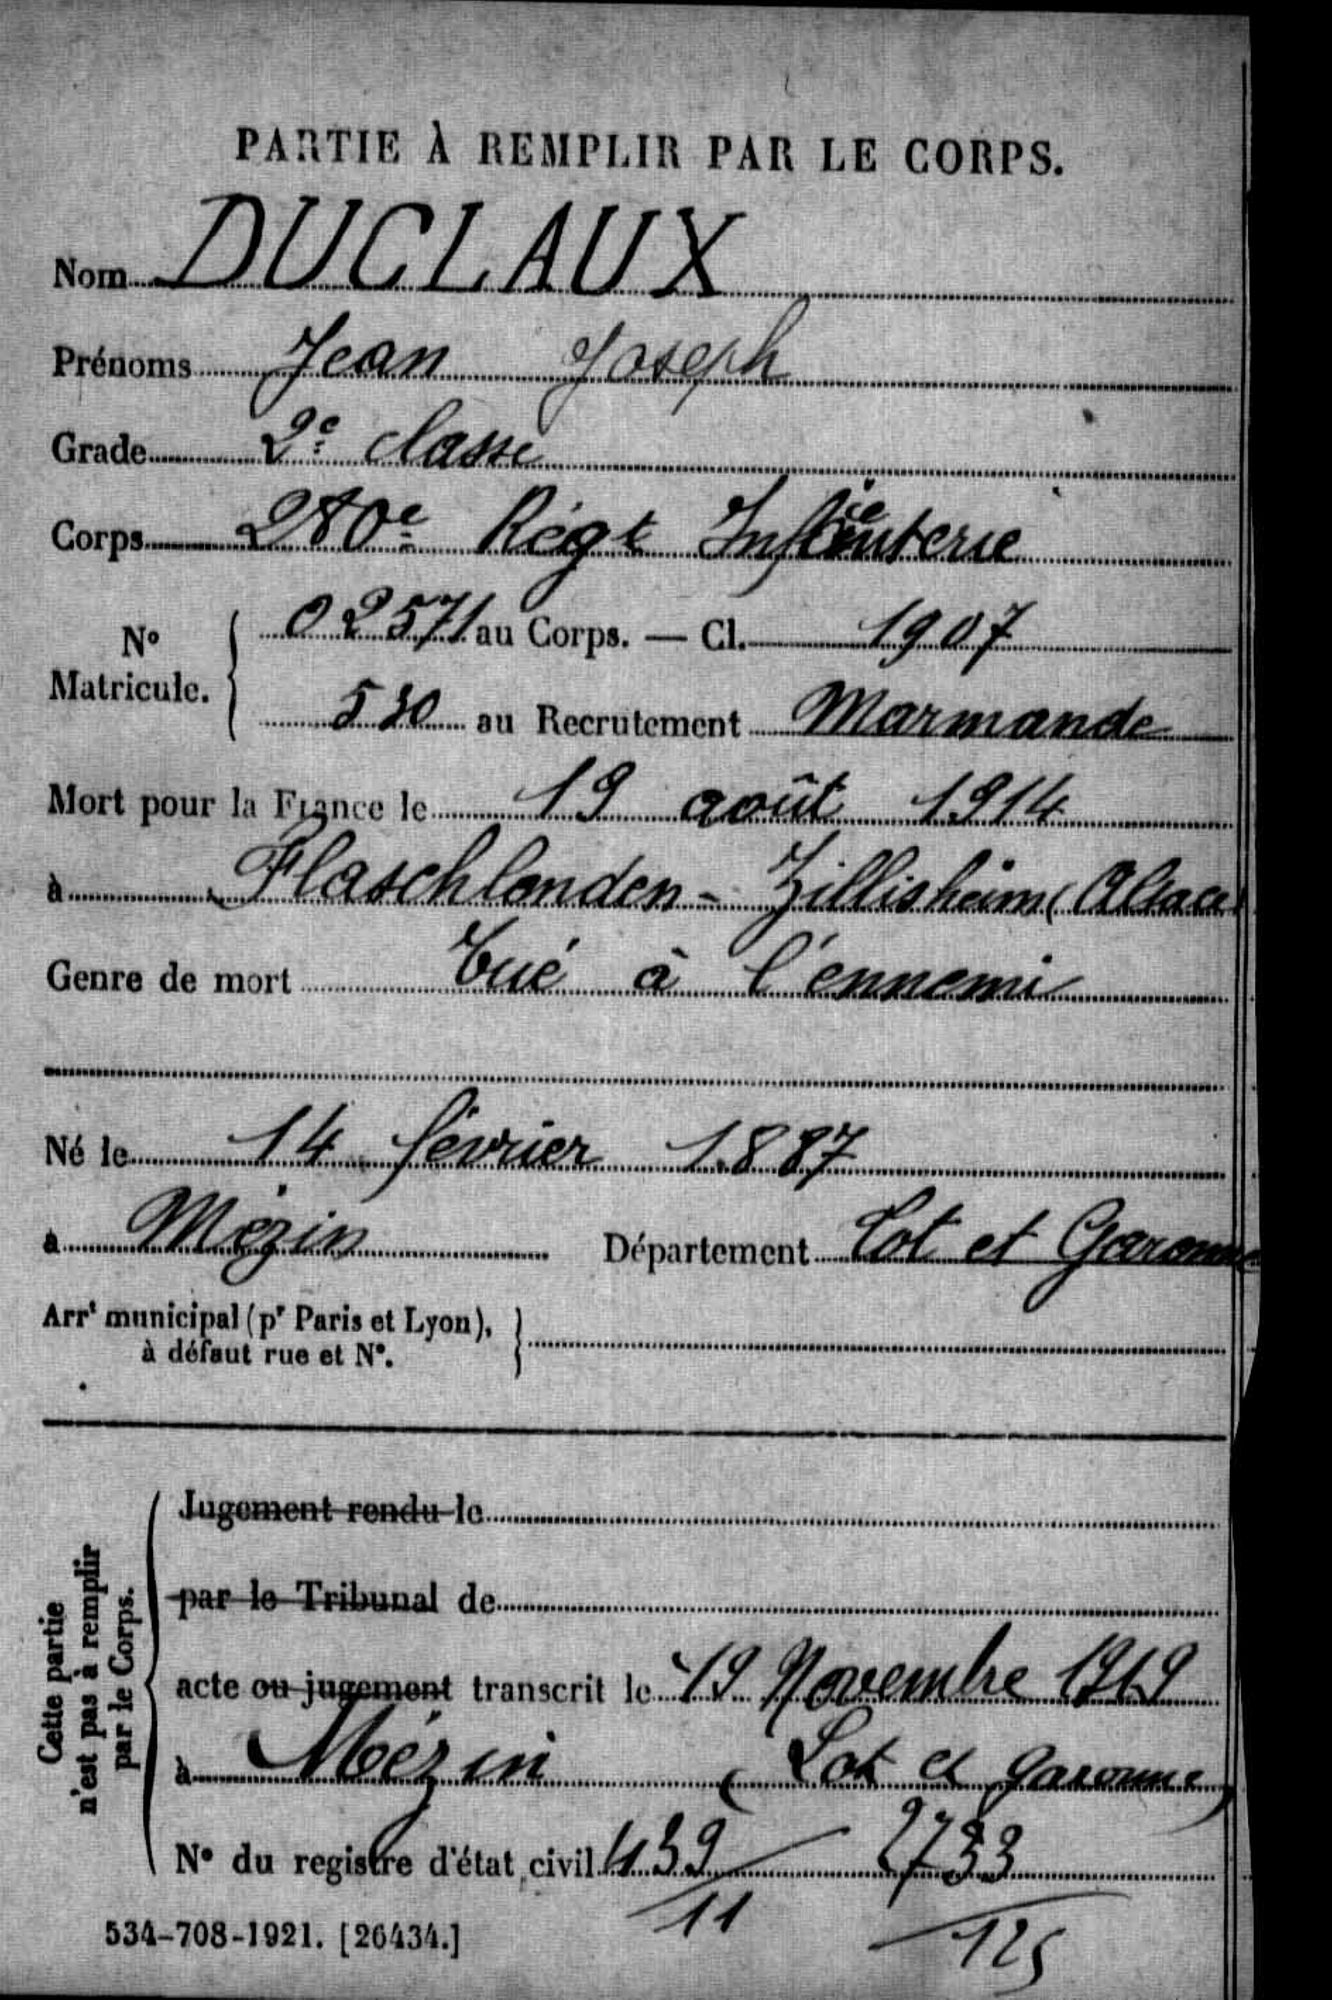 PARTIE À REMPLIR PAR LE CORPS.
Nom DUCLAUX
Prénoms Jean Joseph
Grade 2e classe
Corps 280e Régt Infanterie
No Matricule. 02571 au Corps. — Cl. 1907
530 au Recrutement Marmande
Mort pour la France le 19 août 1914
à Flaschlanden - Zillisheim (Alsace)
Genre de mort Tué à l'ennemi
Né le 14 février 1887
à Mézin Département Lot et Garonne
Arrt municipal (pr Paris et Lyon),
à défaut rue et No.
Cette partie
n'est pas à remplir
par le Corps.
Jugement rendu le
par le Tribunal de
acte ou jugement transcrit le 19 Novembre 1919
à Mézin (Lot et Garonne)
No du registre d'état civil 439 / 11 2733 / 125
534-708-1921. [26434.]